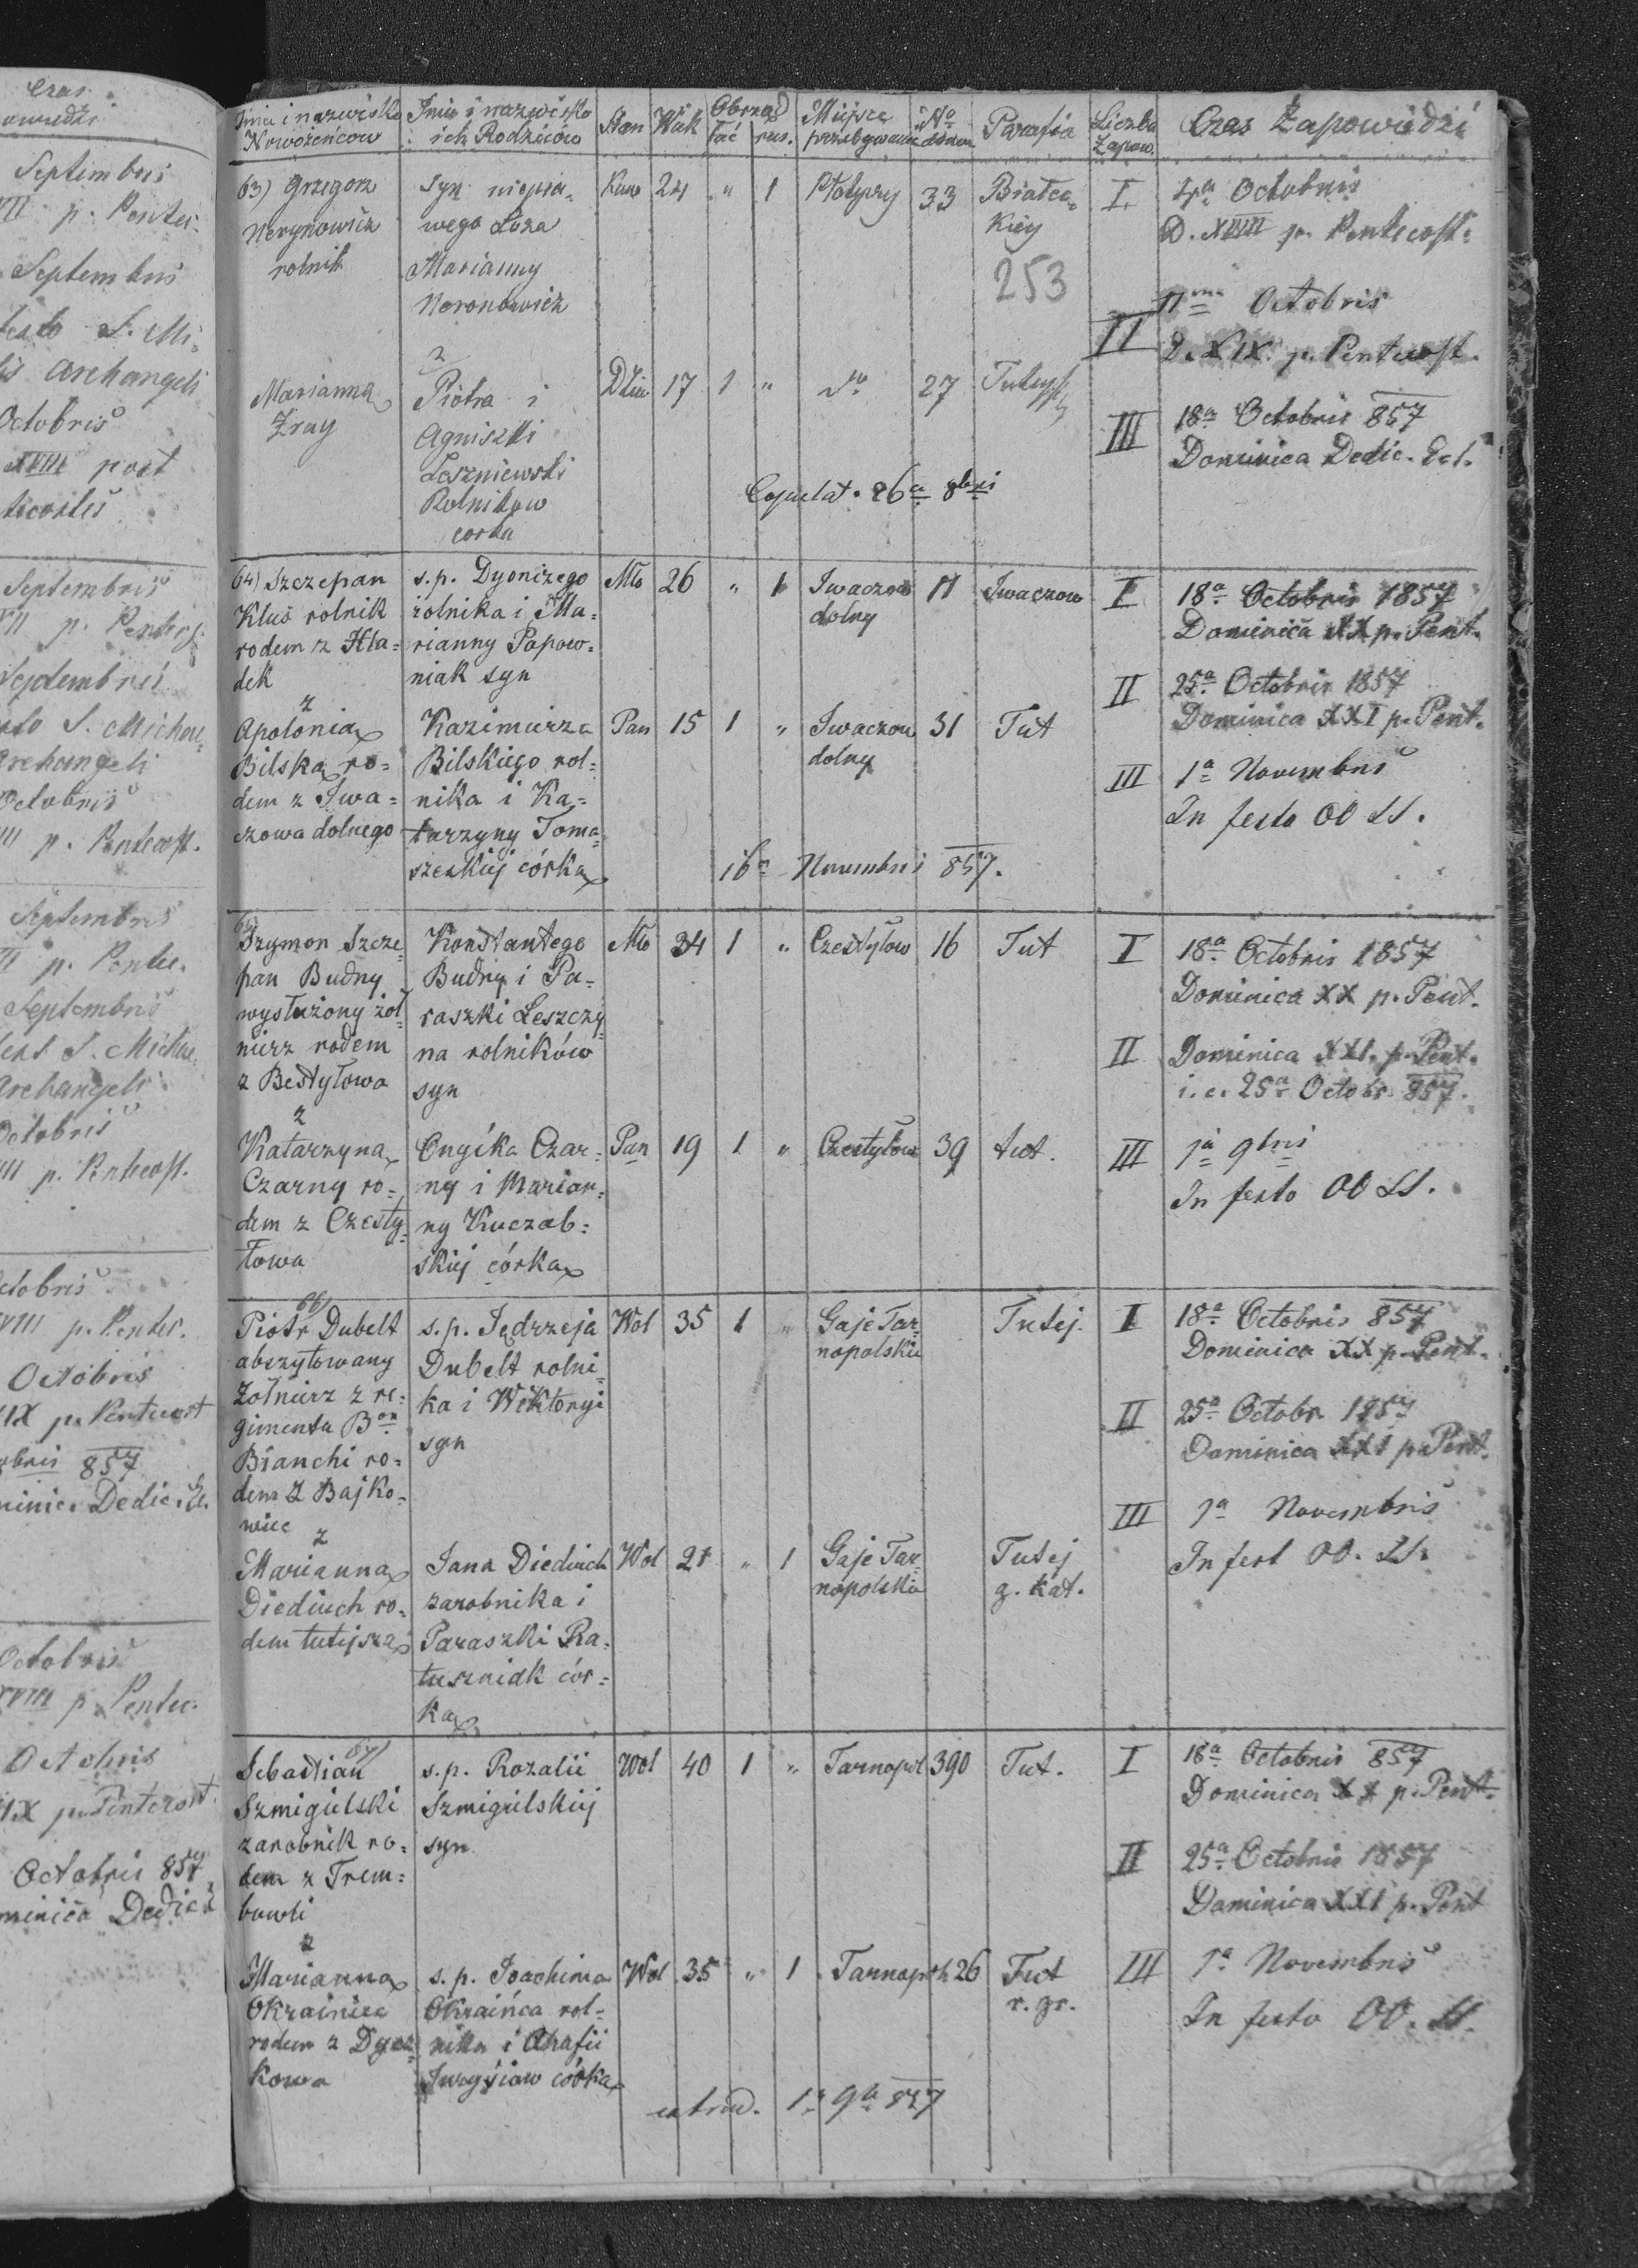 Czas
Septembris
VII p. Pentec.
Septembris
festo S. Mi=
lis Archangeli
Octobris
XVIII post
tecostes
Septembris
VII p. Pentec.
Septembris
S. Michae=
Archangeli
Octobris
III p. Pentecost.
Septembris
VII p. Pentec.
Septembris
fest S. Michae
Archangeli
Octobris
III p. Pentecost.
Octobris
VIII p. Pentec.
Octobris
IX p. Pentecost
obris 857
minic. Dedic. Ec.
Octobris
XVIII p. Pentec.
Octobris
IX p. Pentecost.
Octobris 857
minica Dedic
Imie i nazwisko Nowożeńców
Imie i nazwisko ich Rodziców
Stan
Wiek
Obrząd
łać rus.
Miejsce przebywania
No domu
Parafia
Liczba Zapow.
Czas Zapowiedzi
63) Grzegorz
Nerynowicz
rolnik
syn niepra=
wego Łoża
Marianny
Noronowicz
24 " 1
33
Białec=
kiey
253
I. 4ta Octobris
D. XVIII p. Pentecost.
II 11ma Octobris
D. XIX. p. Pentecost.
III 18a Octobris 857
Dominica Dedic. Ecl.
z
Marianna
Zray
Piotra i
Agniszki
Leszniewski
Rolników
corka
17 1 " dto 27
Copulat. 26a 8bris
64) Szczepan
Kluś rolnik
rodem z Hła=
dek
s.p. Dyonizego
rolnika i Ma=
rianny Popow=
niak syn
Mło 26 " 1 Iwaczow
dolny
11 Iwaczow
I 18a Octobris 1857
Dominica XX p. Pent.
II 25a Octobris 1857
Dominica XXI p. Pent.
III 1a Novembris
In festo OO SS.
z
Apolonia
Bilska ro=
dem z Iwa=
czowa dolnego
Kazimierza
Bilskiego rol=
nika i Ka=
tarzyny Toma=
szeskiej córka
Pan 15 1 " Iwaczow
dolny
31 Tut
16a Novembri 857.
65)
Szymon Szcze
pan Budny
wysłużony żoł=
nierz rodem
z Bestyłowa
Konstantego
Budny i Pa=
raszki Leszczy
na rolników
syn
Mło 34 1 " Czestyłow 16 Tut
I 18a Octobris 1857
Dominica XX p. Pent.
II Dominica XXI. p. Pent.
i. e. 25a Octobr. 857.
III 1a 9bris
In festo OO SS.
z
Katarzyna
Czarny ro=
dem z Czesty=
łowa
Onyśka Czar=
ny i Marian=
ny Kuczab=
skiej córka
Pan 19 1 " Czestyłow 39 tut.
66)
Piotr Dubelt
abszytowany
Żołnierz z re=
gimentu Bon
Bianchi ro=
dem z Bajko=
wiec
s.p. Jędrzeja
Dubelt rolni=
ka i Wiktoryi
syn
Wol 35 1 " Gaje Tar=
nopolskie
Tutej.
I 18a Octobris 857
Dominica XX p. Pent.
II 25a Octobr. 1857
Dominica XXI p. Pent.
III 1a Novembris
In fest OO. SS.
z
Marianna
Diediuch ro=
dem tutejsza
Jana Diediuch
zarobnika i
Paraszki Ra=
tuszniak cór=
ka
Wol 21 " 1 Gaje Tar=
nopolskie
Tutej
g. kat.
67)
Sebastian
Szmigielski
zarobnik ro=
dem z Trem=
bowli
s.p. Rozalii
Szmigielskiej
syn
Wol 40 1 " Tarnopol 390 Tut.
I 18a Octobris 857
Dominica XX p. Pent.
II 25a Octobris 1857
Dominica XXI p. Pent
III 1a Novembris
In festo OO. SS.
z
Marianna
Okrainice
rodem z Dycz=
kowa
s. p. Joachima
Okraińca rol=
nika i Ahafii
córka
Wol 35 " 1 Tarnopol 26 Tut
r. gr.
extrad. 1a 9b 857